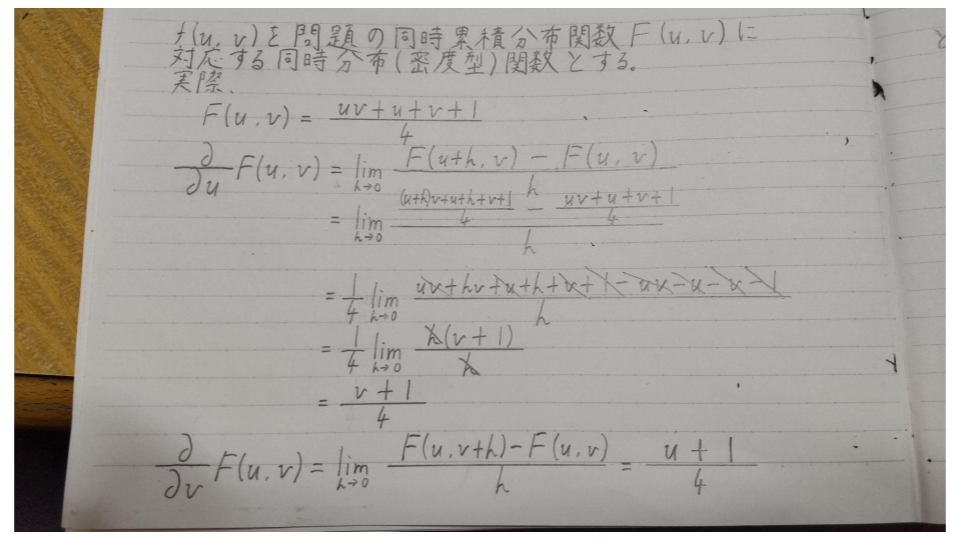 f(u, v)を問題の同時累積分布関数F(u, v)に
対応する同時分布(密度型)関数とする。
実際、
F(u, v) = \frac{uv+u+v+1}{4}
\frac{∂}{∂u} F(u, v) = \lim_{h→0} \frac{F(u+h, v) - F(u, v)}{h}
= \lim_{h→0} \frac{\frac{(u+h)v+u+h+v+1}{4} - \frac{uv+u+v+1}{4}}{h}
= \frac{1}{4} \lim_{h→0} \frac{uv+hv+u+h+v+1-uv-u-v-1}{h}
= \frac{1}{4} \lim_{h→0} \frac{h(v+1)}{h}
= \frac{v+1}{4}
\frac{∂}{∂v} F(u, v) = \lim_{h→0} \frac{F(u, v+h) - F(u, v)}{h} = \frac{u+1}{4}